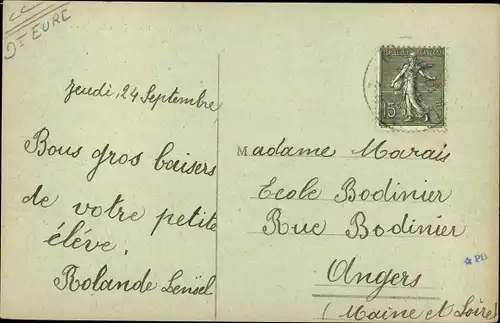 DT EURE
Jeudi, 24 Septembre
Bous gros baisers
de votre petite
éléve,
Rolande
REPUBLIQUE FRANÇAISE
15c
Madame Marais
Ecole Bodinier
Rue Bodinier
Angers
(Maine et Loire)
☆ PB